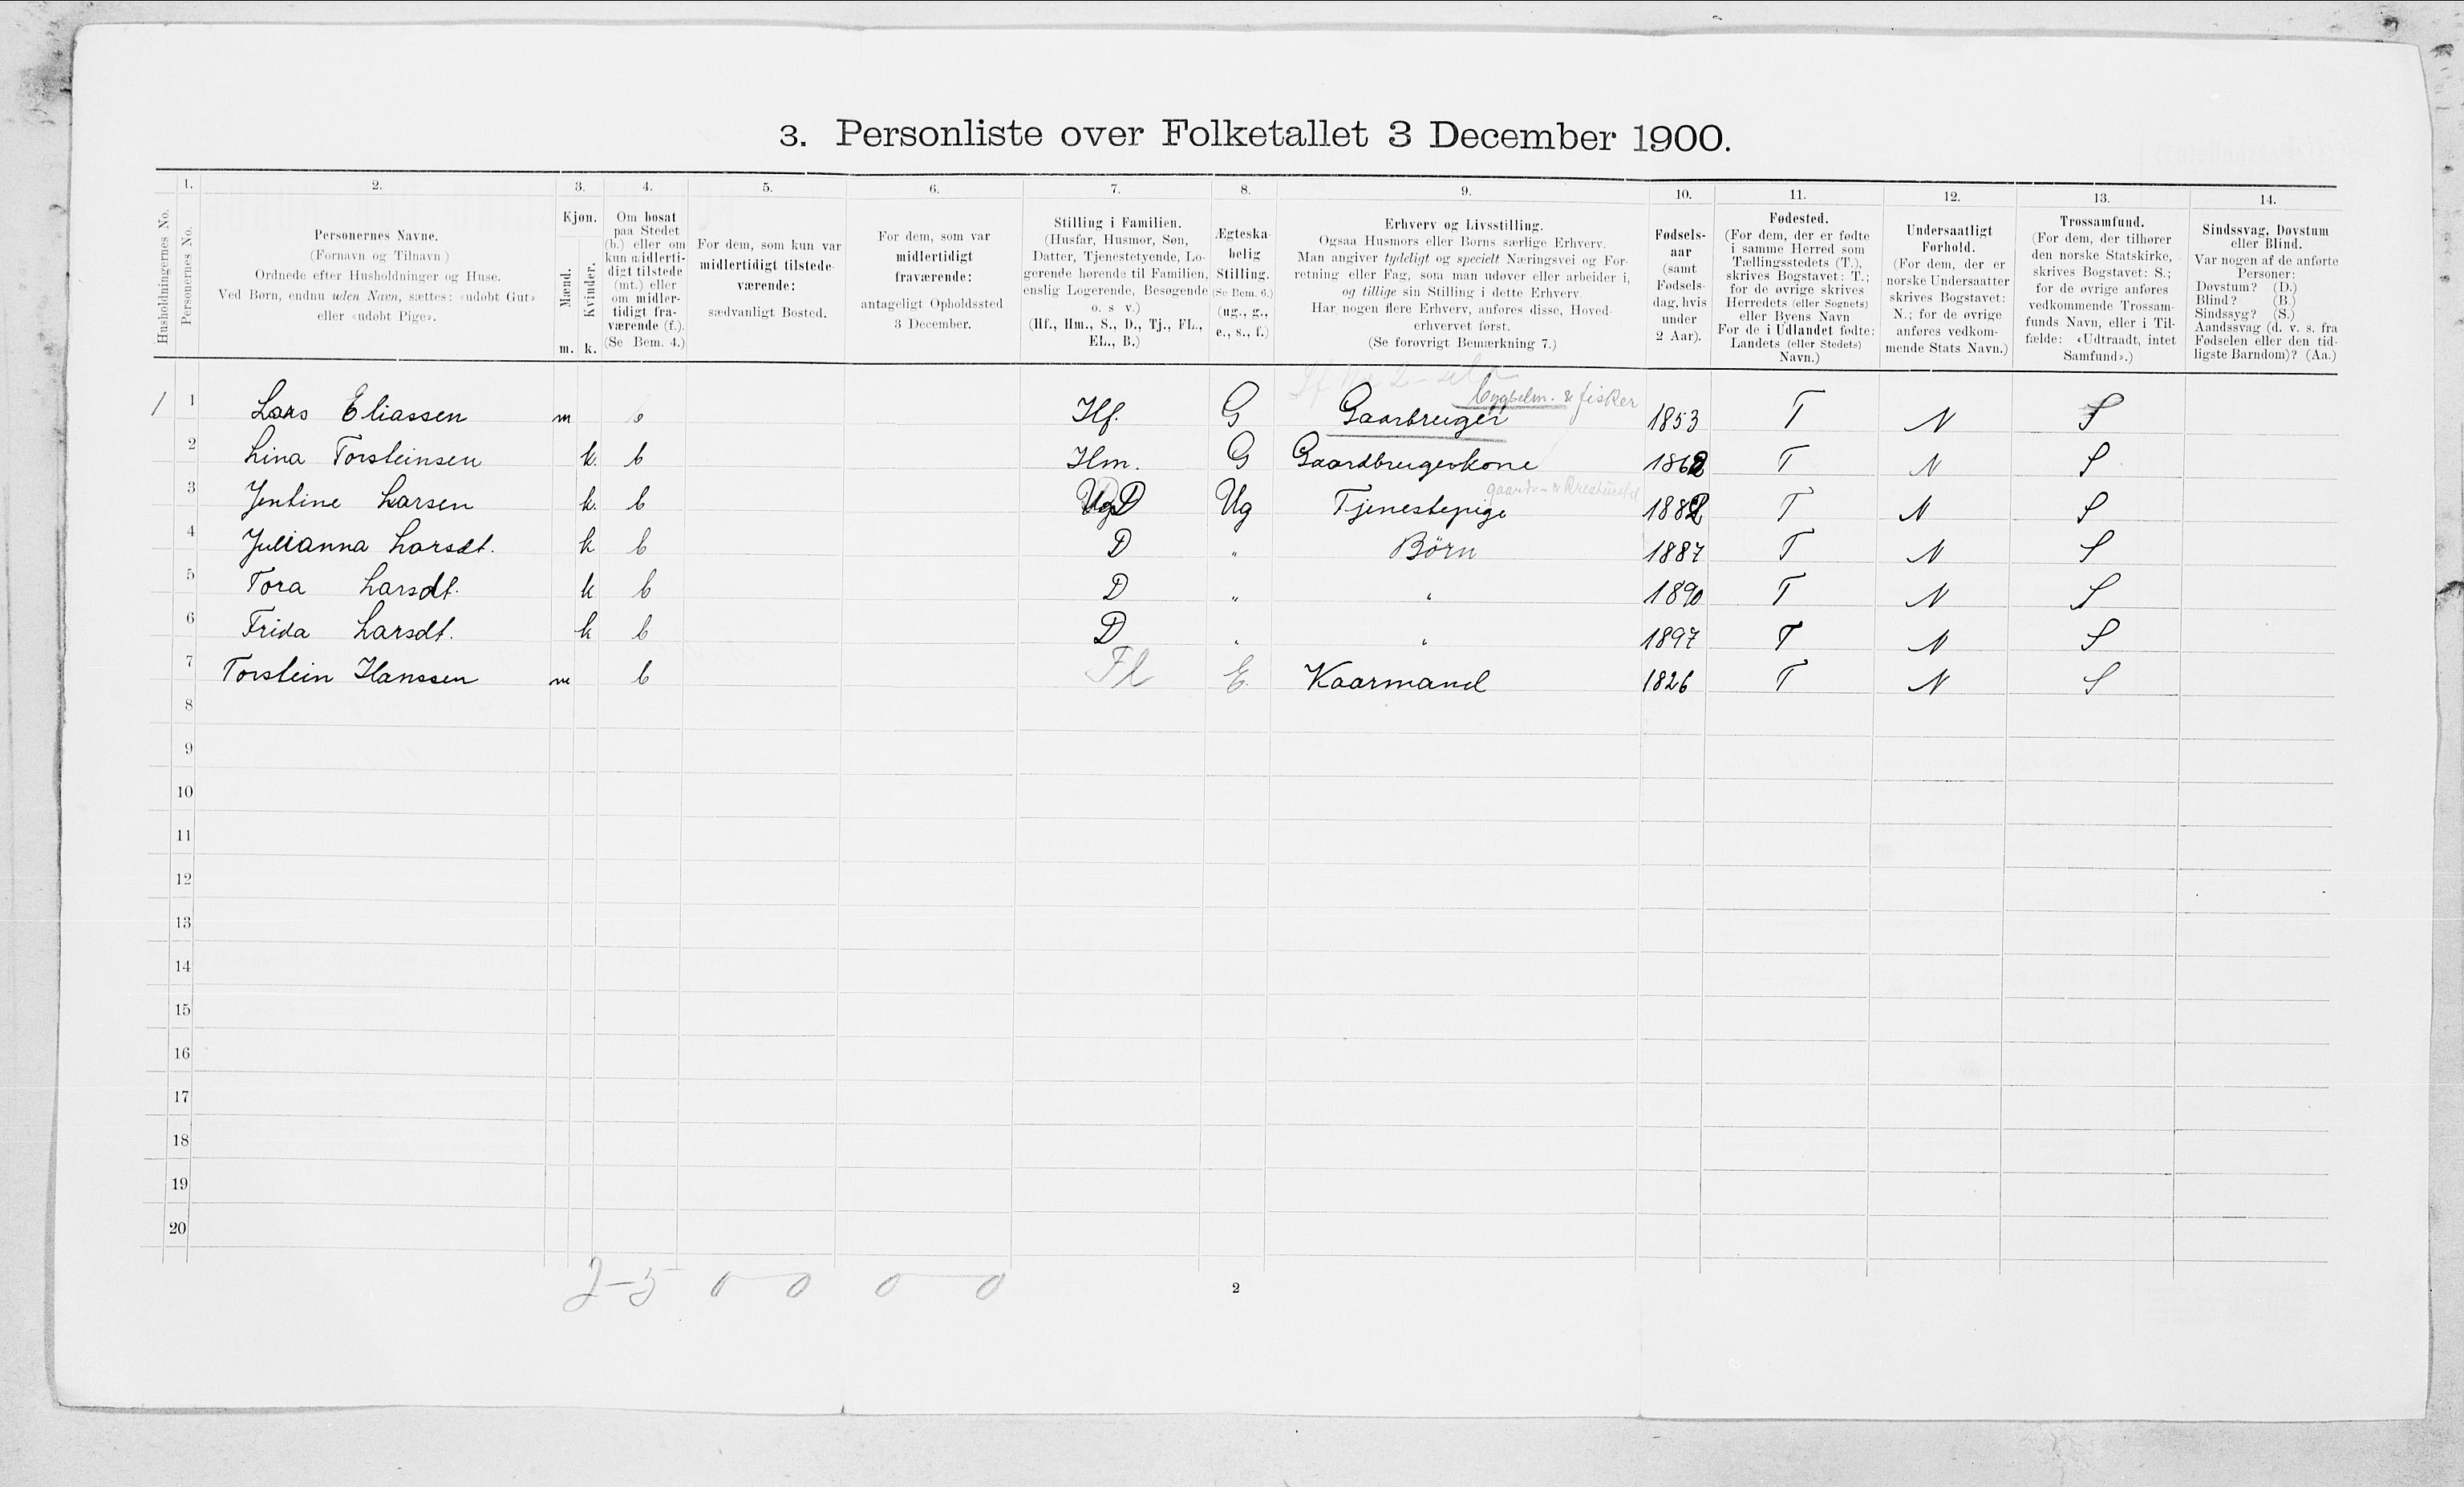 3. Personliste over Folketallet 3 December 1900.
Husholdningernes No.
1.
Personernes No.
2.
Personernes Navne.
(Fornavn og Tilnavn)
Ordnede efter Husholdninger og Huse.
Ved Børn, endnu uden Navn, sættes: «udøbt Gut»
eller «udøbt Pige».
3.
Kjøn.
Mænd.
m.
Kvinder.
k.
4.
Om bosat
paa Stedet
(b.) eller om
kun midlerti-
digt tilstede
(mt.) eller
om midler-
tidigt fra-
værende (f.).
(Se Bem. 4.)
5.
For dem, som kun var
midlertidigt tilstede-
værende:
sædvanligt Bosted.
6.
For dem, som var
midlertidigt
fraværende:
antageligt Opholdssted
3 December.
7.
Stilling i Familien.
(Husfar, Husmor, Søn,
Datter, Tjenestetyende, Lo-
gerende hørende til Familien,
enslig Logerende, Besøgende
o. s v.)
(Hf., Hm., S., D., Tj., FL.,
EL., B.)
8.
Ægteska-
belig
Stilling.
(Se Bem. 6.)
(ug., g.,
e., s., f.)
9.
Erhverv og Livsstilling.
Ogsaa Husmors eller Børns særlige Erhverv.
Man angiver tydeligt og specielt Næringsvei og For-
retning eller Fag, som man udøver eller arbeider i,
og tillige sin Stilling i dette Erhverv.
Har nogen flere Erhverv, anføres disse, Hoved-
erhvervet først.
(Se forøvrigt Bemærkning 7.)
10.
Fødsels-
aar
(samt
Fødsels-
dag, hvis
under
2 Aar).
11.
Fødested.
(For dem, der er fødte
i samme Herred som
Tællingsstedets (T.),
skrives Bogstavet: T.;
for de øvrige skrives
Herredets (eller Sognets)
eller Byens Navn
For de i Udlandet fødte:
Landets (eller Stedets)
Navn.)
12.
Undersaatligt
Forhold.
(For dem, der er
norske Undersaatter
skrives Bogstavet:
N.; for de øvrige
anføres vedkom-
mende Stats Navn.)
13.
Trossamfund.
(For dem, der tilhører
den norske Statskirke,
skrives Bogstavet: S.;
for de øvrige anføres
vedkommende Trossam-
funds Navn, eller i Til-
fælde: «Udtraadt, intet
Samfund».)
14.
Sindssvag, Døvstum
eller Blind.
Var nogen af de anførte
Personer:
Døvstum? (D.)
Blind? (B.)
Sindssyg? (S.)
Aandssvag (d. v. s. fra
Fødselen eller den tid-
ligste Barndom)? (Aa.)
bygselm. & fisker
1 1 Lars Eliassen m b Hf. G Gaarbruger 1853 T N S
2 Lina Torsteinsen k. b Hm. G Gaardbrugerkone 1862 T N S
gaards-
3 Jentine Larsen k. b D Ug Tjenestepige 1882 T N S
4 Julianna Larsdt. k b D " Børn 1887 T N S
5 Tora Larsdt. k b D " " 1890 T N S
6 Frida Larsdt. k b D " " 1897 T N S
7 Torstein Hanssen m b Fl E. Kaarmand 1826 T N S
8
9
10
11
12
13
14
15
16
17
18
19
20
2-5 0-0 0-0
2